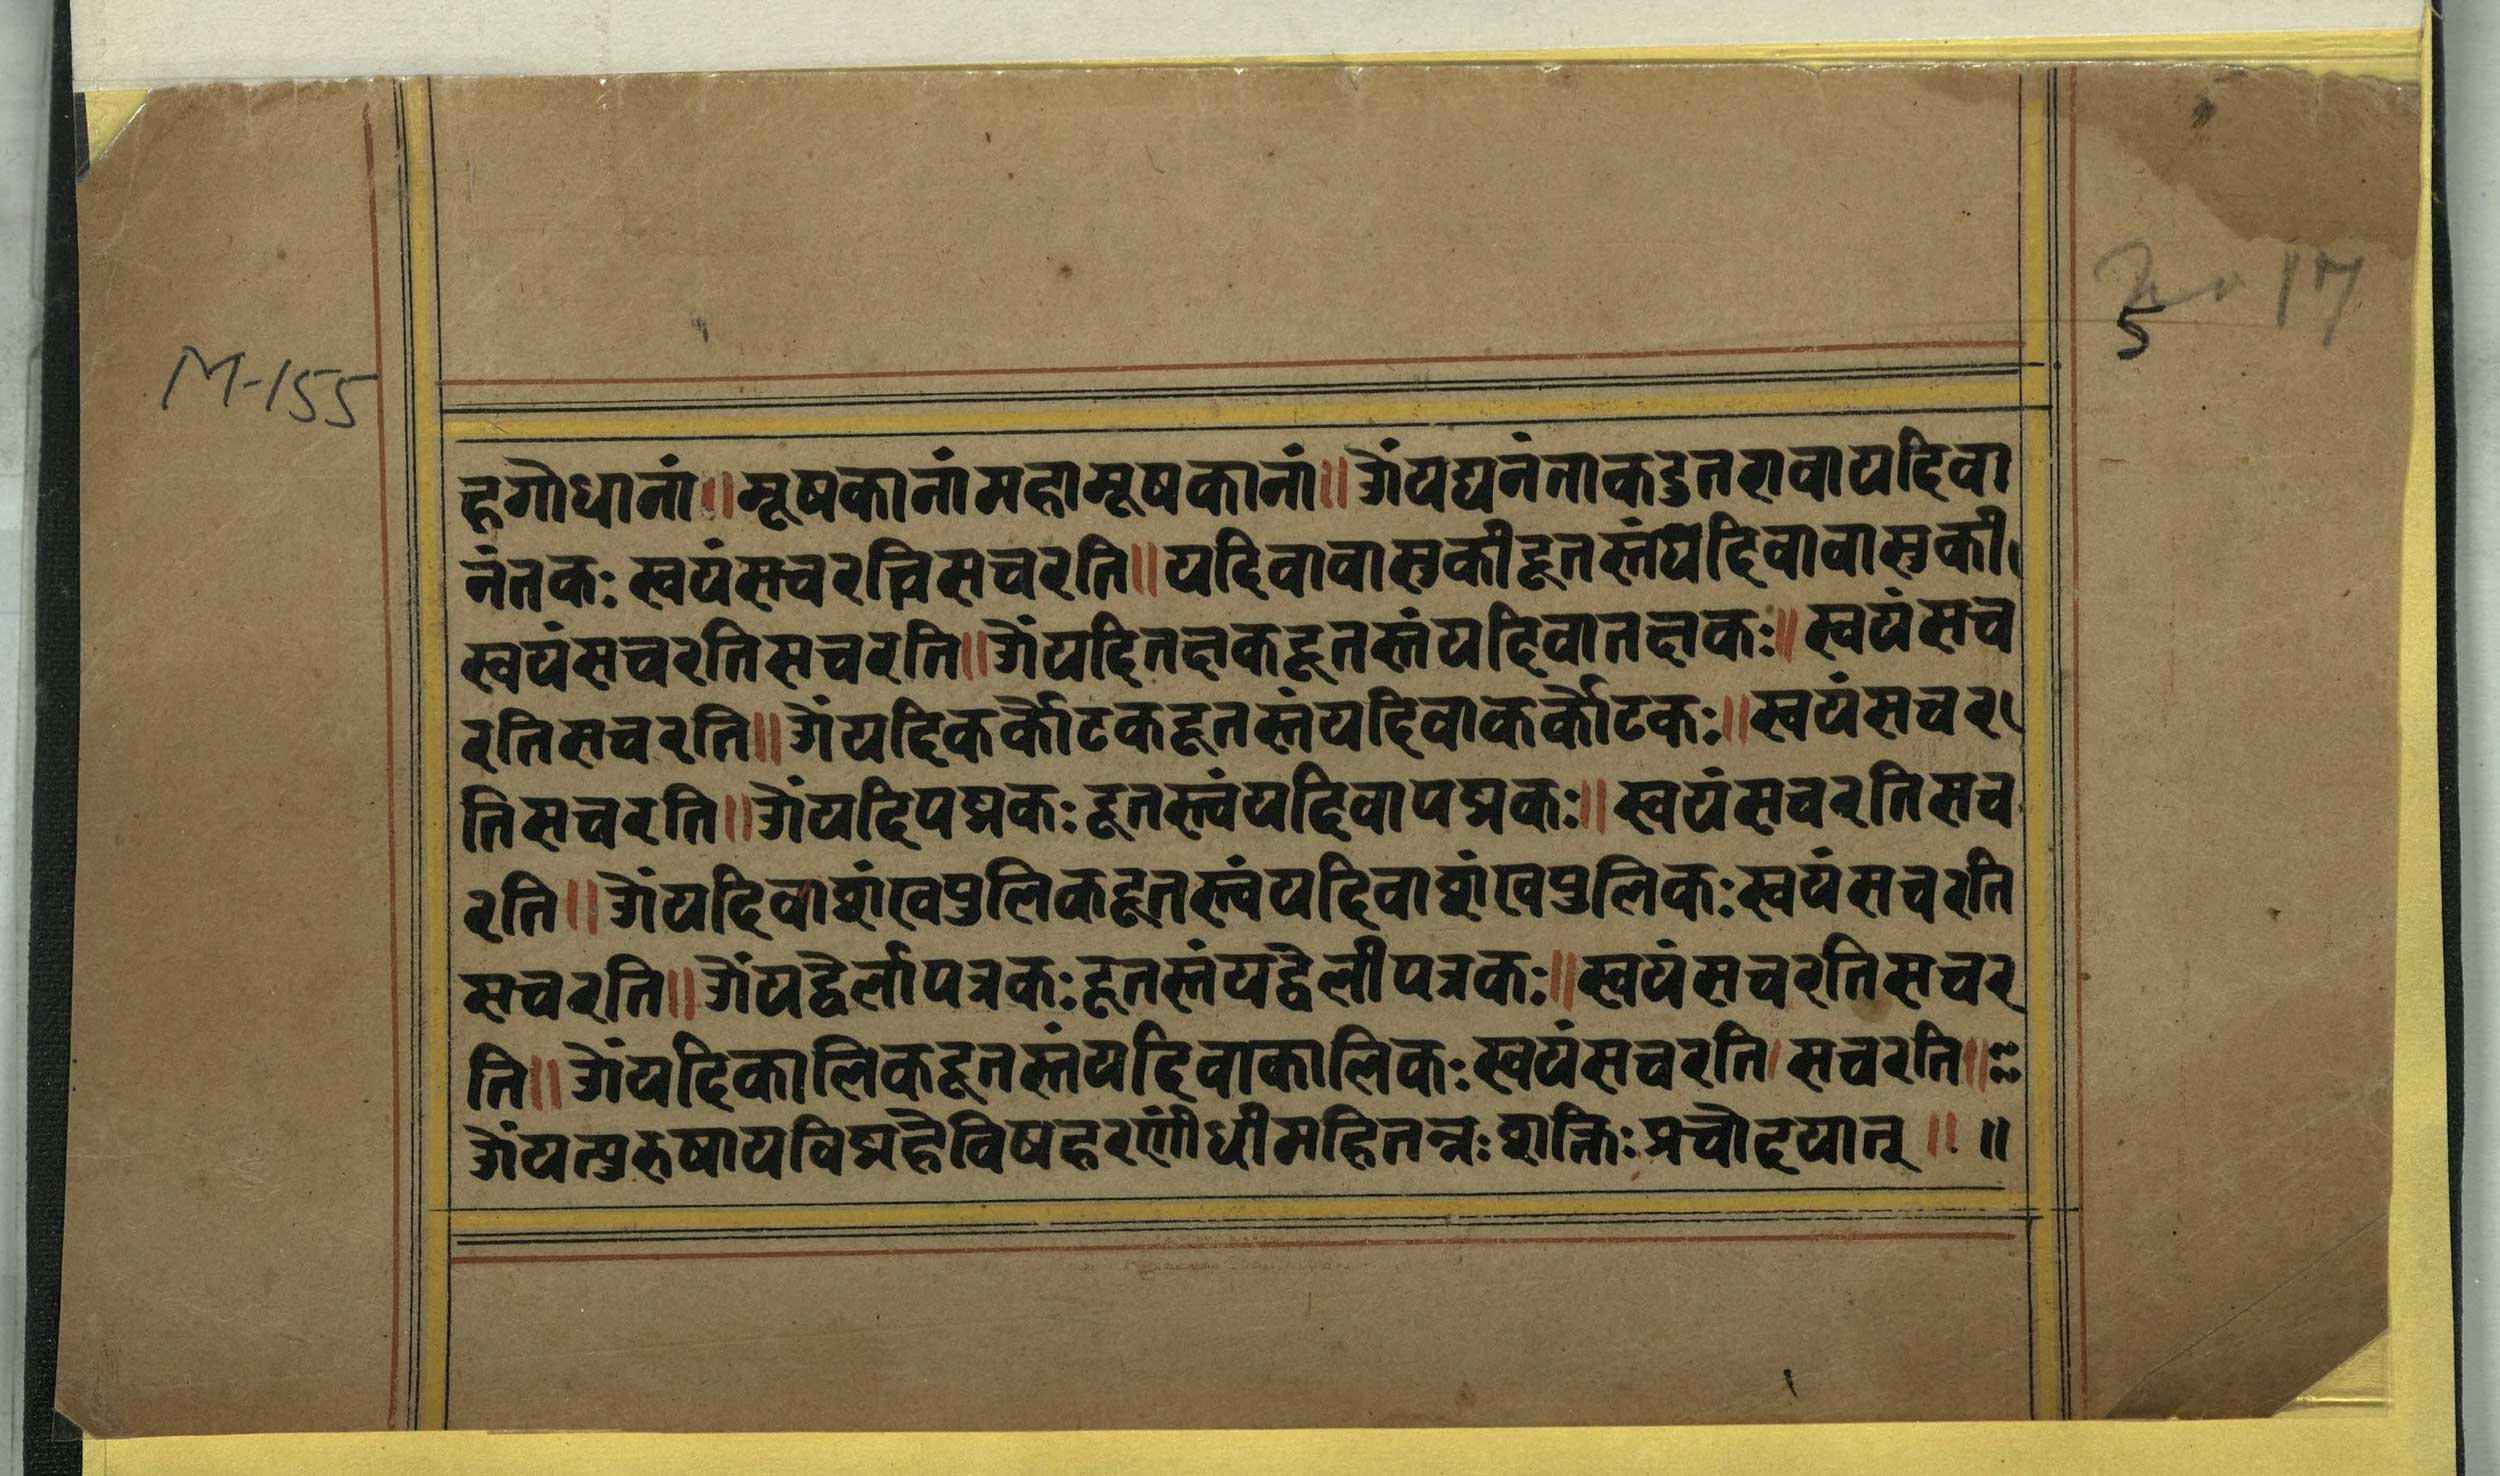 M-155
17
5
हगोधानां॥मूषकानांमहामूषकानां॥ॐयद्यनंताकडुतरावायदिवा
नंतकः स्वयंसचरत्तिसचरति॥यदिवावासुकीदूतस्तंयदिवावासुकी
स्वयंसचरतिसचरति॥ॐयदितक्षकदूतस्तंयदिवातक्षकः॥स्वयंसच
रतिसचरति॥ॐयदिकर्कोटकदूतस्तंयदिवाकर्कोटकः॥स्वयंसचर
तिसचरति॥ॐयदिपद्मकः दूतस्त्वंयदिवापद्मकः॥स्वयंसचरतिसच
रति॥ॐयदिवाशंखपुलिकदूतस्त्वंयदिवाशंखपुलिकः स्वयंसचरति
सचरति॥ॐयद्वैलापत्रकः दूतस्तंयद्वैलीपत्रकः॥स्वयंसचरतिसचर
ति॥ॐयदिकालिकदूतस्तंयदिवाकालिकः स्वयंसचरति।सचरति॥
ॐयत्पुरुषायविद्महैविषहरणींधीमहितन्नः शक्तिः प्रचोदयात्॥॥